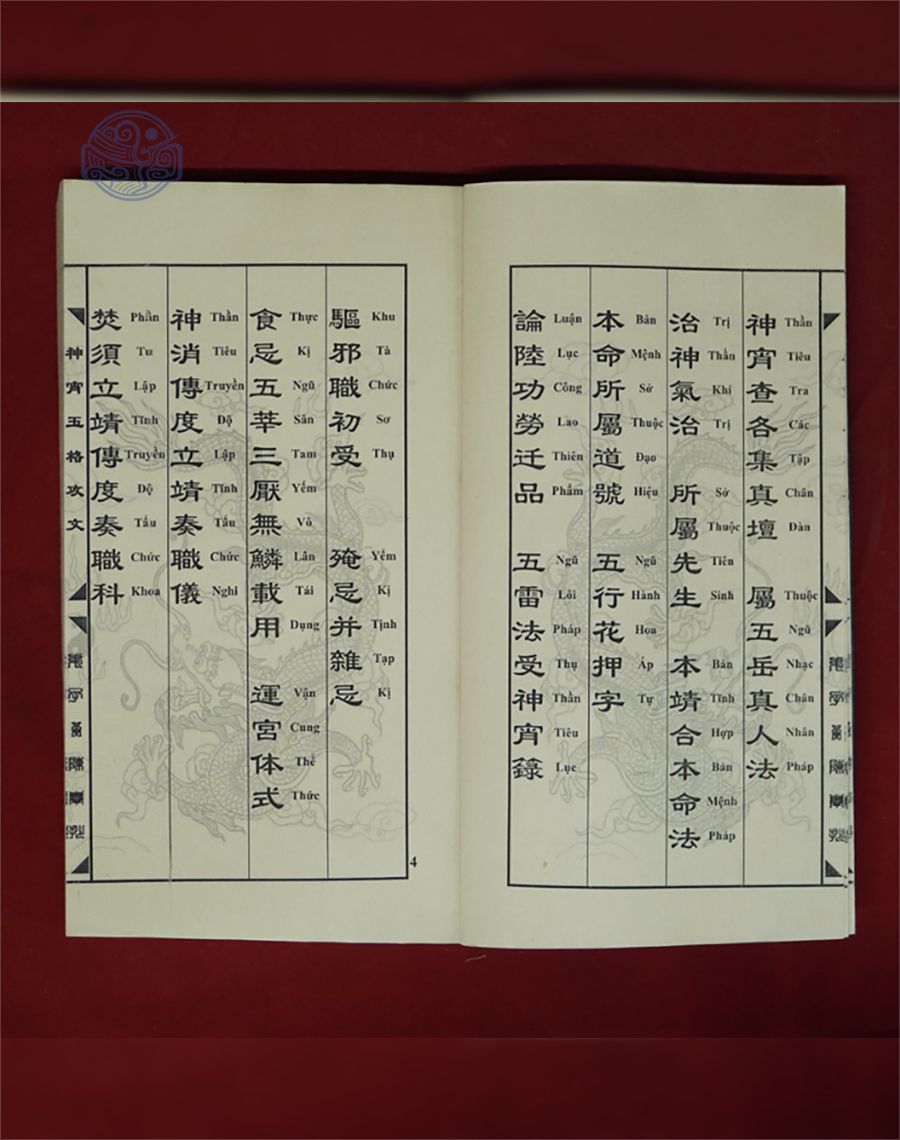 神宵查各集真壇 屬五岳真人法
Thần Tiêu Tra Các Tập Chân Đàn Thuộc Ngũ Nhạc Chân Nhân Pháp
治神氣治 所屬先生 本靖合本命法
Trị Thần Khí Trị Sở Thuộc Tiên Sinh Bản Tĩnh Hợp Bản Mệnh Pháp
本命所屬道號 五行花押字
Bản Mệnh Sở Thuộc Đạo Hiệu Ngũ Hành Hoa Áp Tự
論陸功勞迁品 五雷法受神宵錄
Luận Lục Công Lao Thiên Phẩm Ngũ Lôi Pháp Thụ Thần Tiêu Lục
驅邪職初受 殗忌并雜忌
Khu Tà Chức Sơ Thụ Yểm Kị Tịnh Tạp Kị
食忌五莘三厭無鱗載用 運宮体式
Thực Kị Ngũ Sân Tam Yếm Vô Lân Tái Dụng Vận Cung Thể Thức
神消傳度立靖奏職儀
Thần Tiêu Truyền Độ Lập Tĩnh Tấu Chức Nghi
焚須立靖傳度奏職科
Phần Tu Lập Tĩnh Truyền Độ Tấu Chức Khoa
神宵玉格攻文
4